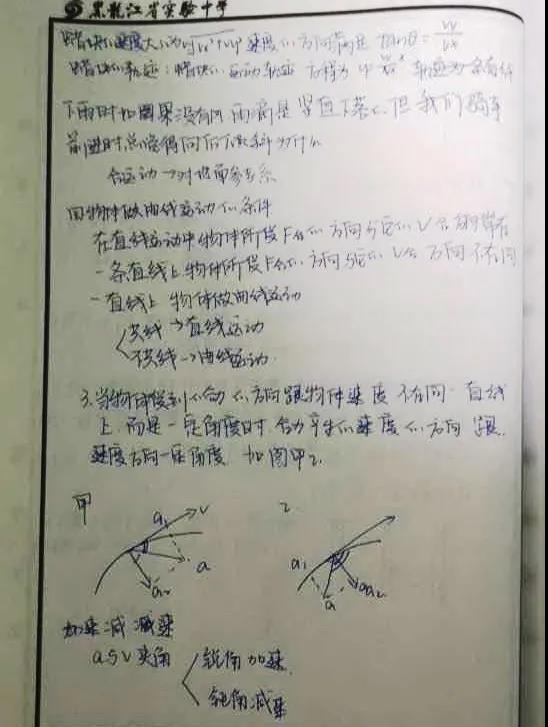 黑龙江省实验中学
蜡块的速度大小为√vx²+vy² 速度的方向满足 tanθ = vy/vx
蜡块的轨迹:蜡块的运动轨迹
下雨时如果没有风 雨滴是竖直下落的,但我们骑车
前进时总觉得向后倾斜 为什么
合运动→对地面参考系
物体做曲线运动的条件
在直线运动中物体所受F合的方向与它的V合方向
一条直线上 物体所受F合的方向与它的V合方向不在同
一直线上 物体做曲线运动
共线→直线运动
不共线→曲线运动
3.当物体受到的合力的方向跟物体速度不在同一直线
上,而是一定角度时,合力产生的速度的方向跟
速度方向一定角度 如图甲乙
甲
a₁
v
a
a₂
乙
a₁
a
a₂
加速 减速
a与v夹角
锐角加速
钝角减速